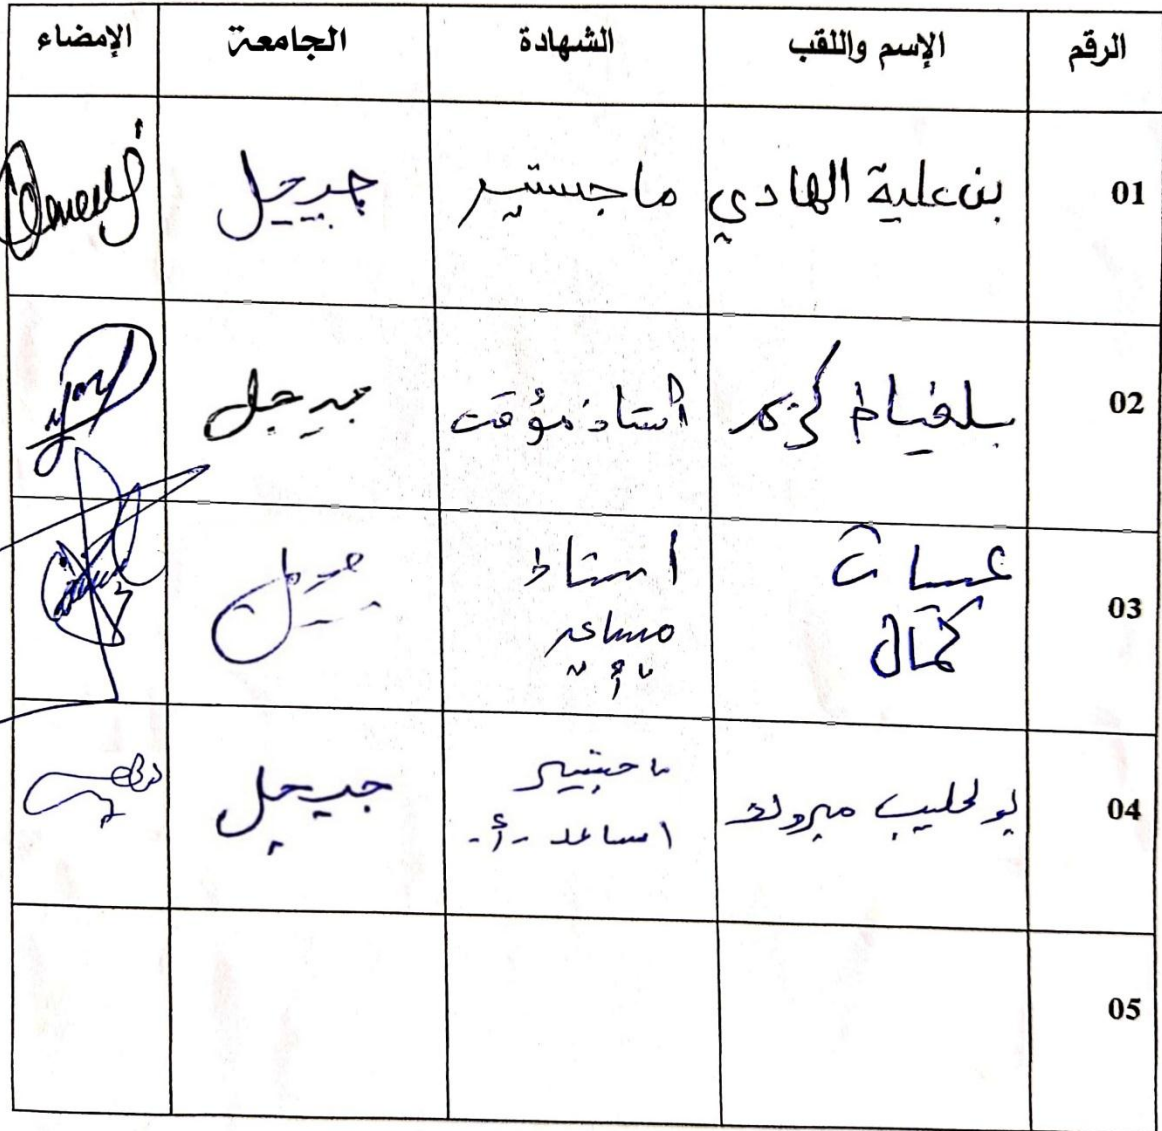 الرقم الإسم واللقب الشهادة الجامعة الإمضاء
01 بن علية الهادي ماجستير جيجل
02 بلغياط كريم أستاذ مؤقت جيجل
03 عسات كمال استاذ مساعد أ جيجل
04 بولحليب مبروك ماجستير
ا مساعد -أ- جيجل
05